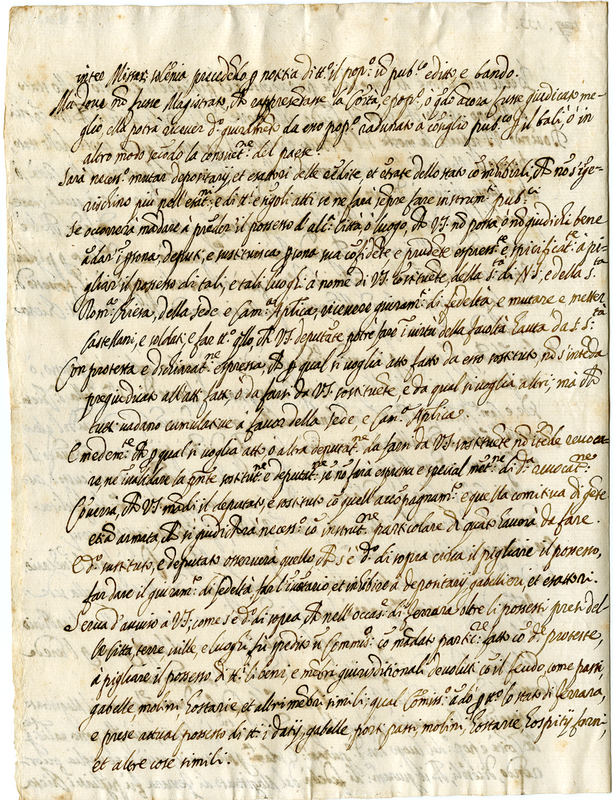 intro Missar: solenia precedendo p nostra di tt.o il pop.o in pub.co edito, e bando.
Ma dove nō fusse Magistrato, ch rappresentasse la Città, e pop.o, ò q.do ancora fusse giudicato me-
glio ella potrà ricever d.o giuram.to da esso pop.o radunato à consiglio pub.co p il bali, ò in
altro modo secondo la consuet.ne del paese.
Sarà necess.o mutar depositarij, et esattori delle entrate dello stato
più nell' e di tt.i e singoli atti se ne farà sēpre fare instrum.ti pub.ci
Se occorrerà mādare à prēder il possesso d'alc.a Città, ò luogo, ch V.S. nō possa, ò nō giudichi bene
andar ī persona; deputi, e sostituisca persona sua cōfidēte e prudēte e specificat.e à pi-
gliar il possesso di tali, e tali luoghi à nome di V.S. sostituēte, della S.tà di N.S. e della S.ta
Rom.a Chiesa, della Sede e Cam.a Ap.lica, ricevere giuram.ti di fedeltà, e mutare e metter
Castellani, e soldati, e fare tt.o q.llo, ch V.S. deputāte potrebbe fare ī virtù della facoltà havuta da S. S.tà
Con protesta, e dichiarat.ne espressa, ch p qual si voglia atto fatto da esso sostituto nō s'intēda
pregiudicato all'atti fatti, ò da farsi da V.S. sostituēte, e da qual si voglia altri; mà ch
tutti vadano cumulative à favor della Sede, e Cam.a Ap.lica.
E medem.te ch p qual si voglia atto, o altra deputat.ne da farsi da V.S. sostituēte nō s'intēda revoca-
ta ne invalidare la p.nte sostitut.ne e deputat.ne se nō farà espressa e special mēt.ne di d.a revocat.ne
Converrà, ch V.S. mādi il deputato, e sostituto cō quell'accōpagnam.to e quella comitiva di gēte
et armata, ch si giudicherà necess.a cō instrut.ne particolare di quāto haverà da fare.
E d.o sostituto, e deputato osserverà quello ch s'è d.o di sopra circa il pigliare il possesso,
far dare il giuram.to di fedeltà, far l'inventario et inhibire à depositarij gabellieri, et esattori.
Serva d'avviso à V.S., come s'è d.o di sopra, ch nell'occas.ne di Ferrara oltre li possessi presi del-
le Città, terre, ville, e luoghi, fù spedito un Commiss.o cō mādato partic.re fatto cō d.e proteste,
à pigliare il possesso di tt.i li beni, e mēbri giurisditionali devoluti cō il feudo, come passi,
gabelle, molini, hostarie, et altri mēbri simili; qual Comiss.o andò p tt.o lo stato di Ferrara,
e prese attual possesso di tt.i i datij, gabelle, porti, passi, molini, hostarie, hospitij, forni,
et altre cose simili.